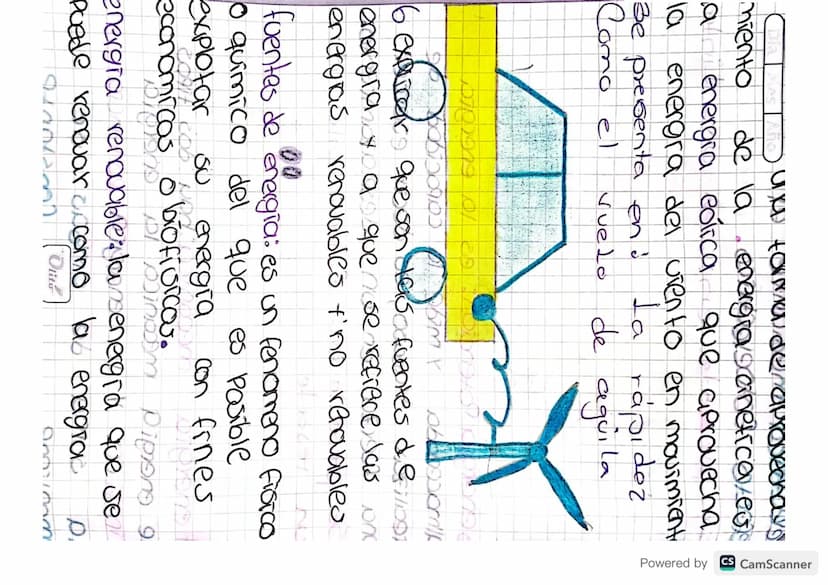 una forma de aprovecha
miento de la energía cinetica es
la energía eólica que aprovecha
la energía del viento en movimient
Se presenta en: La rápidez
Como el vuelo de aguila
6 explicar que son las fuentes de
energía y a que se refiere las
energias renovables y no renovables
fuentes de energía: es un fenomeno físico
o químico del que es posible
explotar su energía con fines
económicos o biofísicos.
energía renovable: la energía que se
puede renovar como la energía
Powered by CS CamScanner